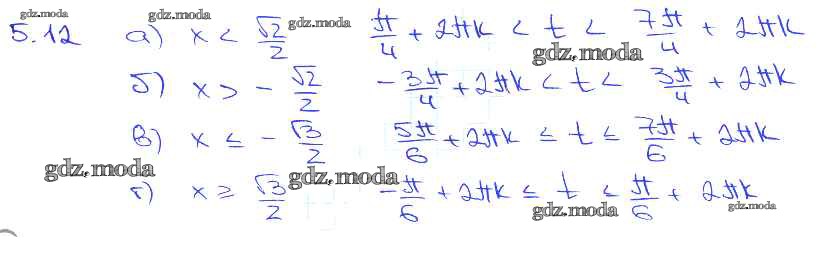 gdz.moda gdz.moda
5.12 а) x < √2/2 gdz.moda π/4 + 2πk < t < 7π/4 + 2πk
gdz.moda
б) x > - √2/2 - 3π/4 + 2πk < t < 3π/4 + 2πk
в) x ≤ - √3/2 5π/6 + 2πk ≤ t ≤ 7π/6 + 2πk
gdz.moda gdz.moda
г) x ≥ √3/2 - π/6 + 2πk ≤ t ≤ π/6 + 2πk
gdz.moda gdz.moda